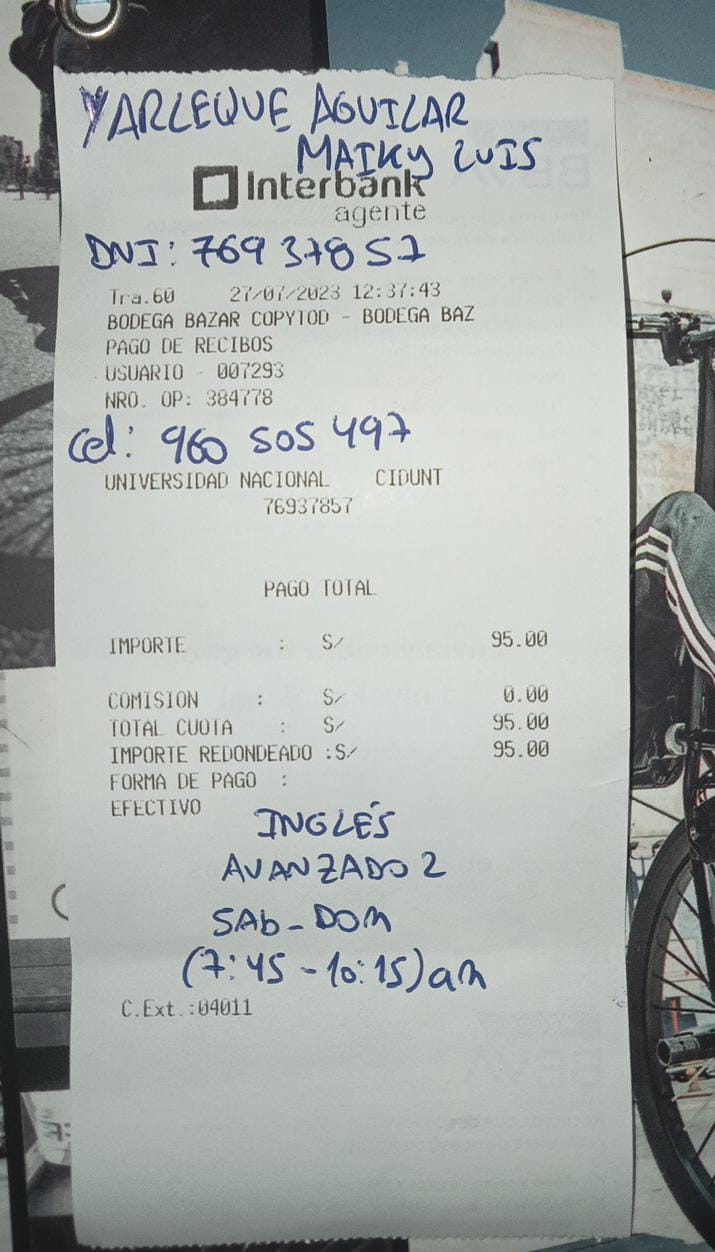 YARLEQUE AGUILAR
MAIKY LUIS
Interbank
agente
DNI: 769 378 57
Tra.60 27/07/2023 12:37:43
BODEGA BAZAR COPYTOD - BODEGA BAZ
PAGO DE RECIBOS
USUARIO - 007293
NRO. OP: 384778
Cel: 960 505 497
UNIVERSIDAD NACIONAL CIDUNT
76937857
PAGO TOTAL
IMPORTE : S/ 95.00
COMISION : S/ 0.00
TOTAL CUOTA : S/ 95.00
IMPORTE REDONDEADO :S/ 95.00
FORMA DE PAGO :
EFECTIVO
INGLÉS
AVANZADO 2
SAb-DOM
(7:45 - 10:15)am
C.Ext.:04011